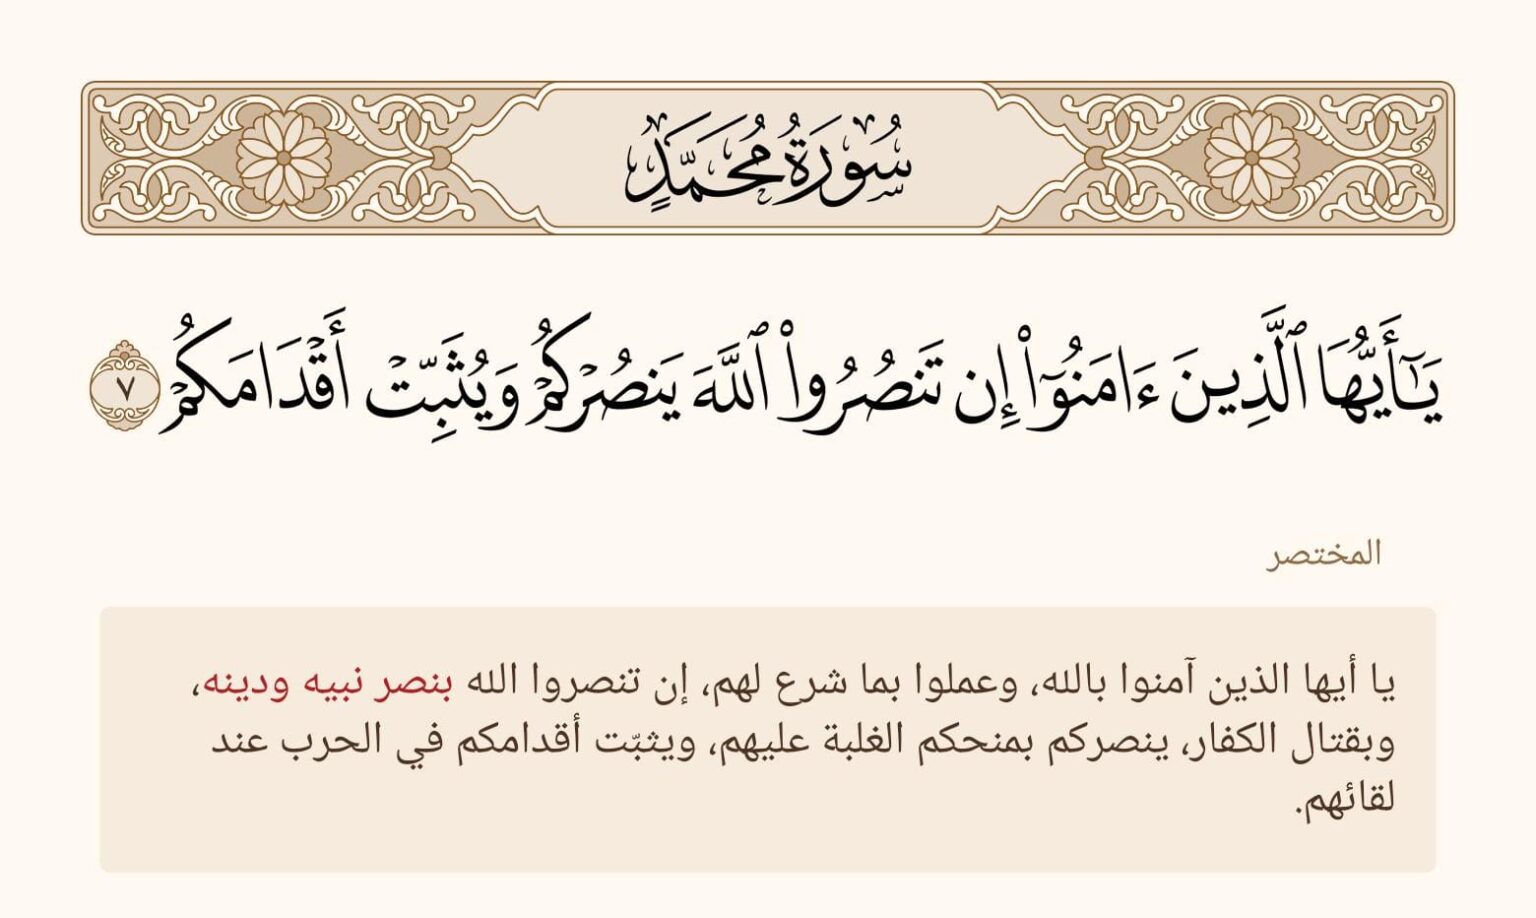 سُورَةُ مُحَمَّدٍ
يَٰٓأَيُّهَا ٱلَّذِينَ ءَامَنُوٓا۟ إِن تَنصُرُوا۟ ٱللَّهَ يَنصُرْكُمْ وَيُثَبِّتْ أَقْدَامَكُمْ ٧
المختصر
يا أيها الذين آمنوا بالله، وعملوا بما شرع لهم، إن تنصروا الله بنصر نبيه ودينه،
وبقتال الكفار، ينصركم بمنحكم الغلبة عليهم، ويثبّت أقدامكم في الحرب عند
لقائهم.